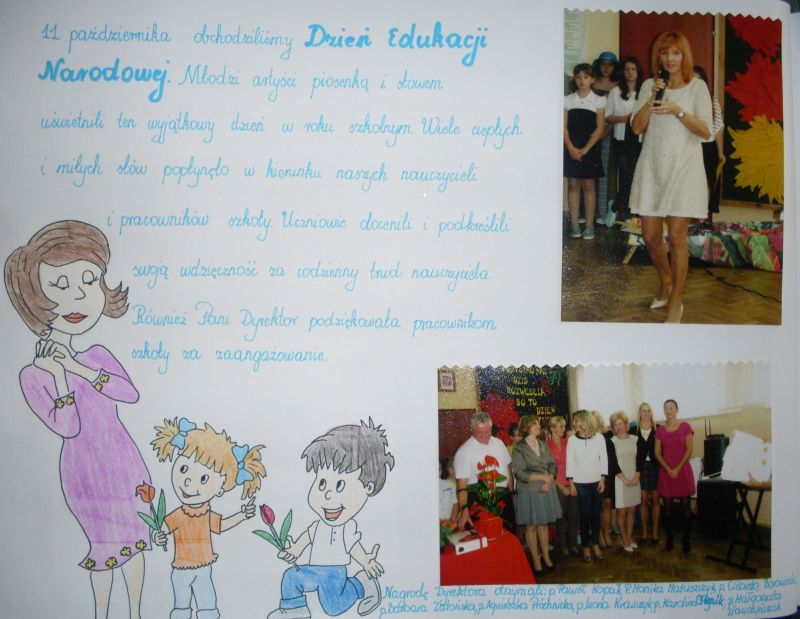 11 października obchodziliśmy Dzień Edukacji
Narodowej. Młodzi artyści piosenką i słowem
uświetnili ten wyjątkowy dzień w roku szkolnym. Wiele ciepłych
i miłych słów popłynęło w kierunku naszych nauczycieli
i pracowników szkoły. Uczniowie docenili i podkreślili
swoją wdzięczność za codzienny trud nauczyciela.
Również Pani Dyrektor podziękowała pracownikom
szkoły za zaangażowanie.
DZIŚ
ROZWESELA
BO TO
DZIEŃ
Nagrodę Dyrektora otrzymali: p. Paweł Kopuik, P. Monika Matuszczyk, p. Elżbieta
p. Barbara p. Agnieszka p. Iwona Krawczyk, p. Karolina p. Małgorzata